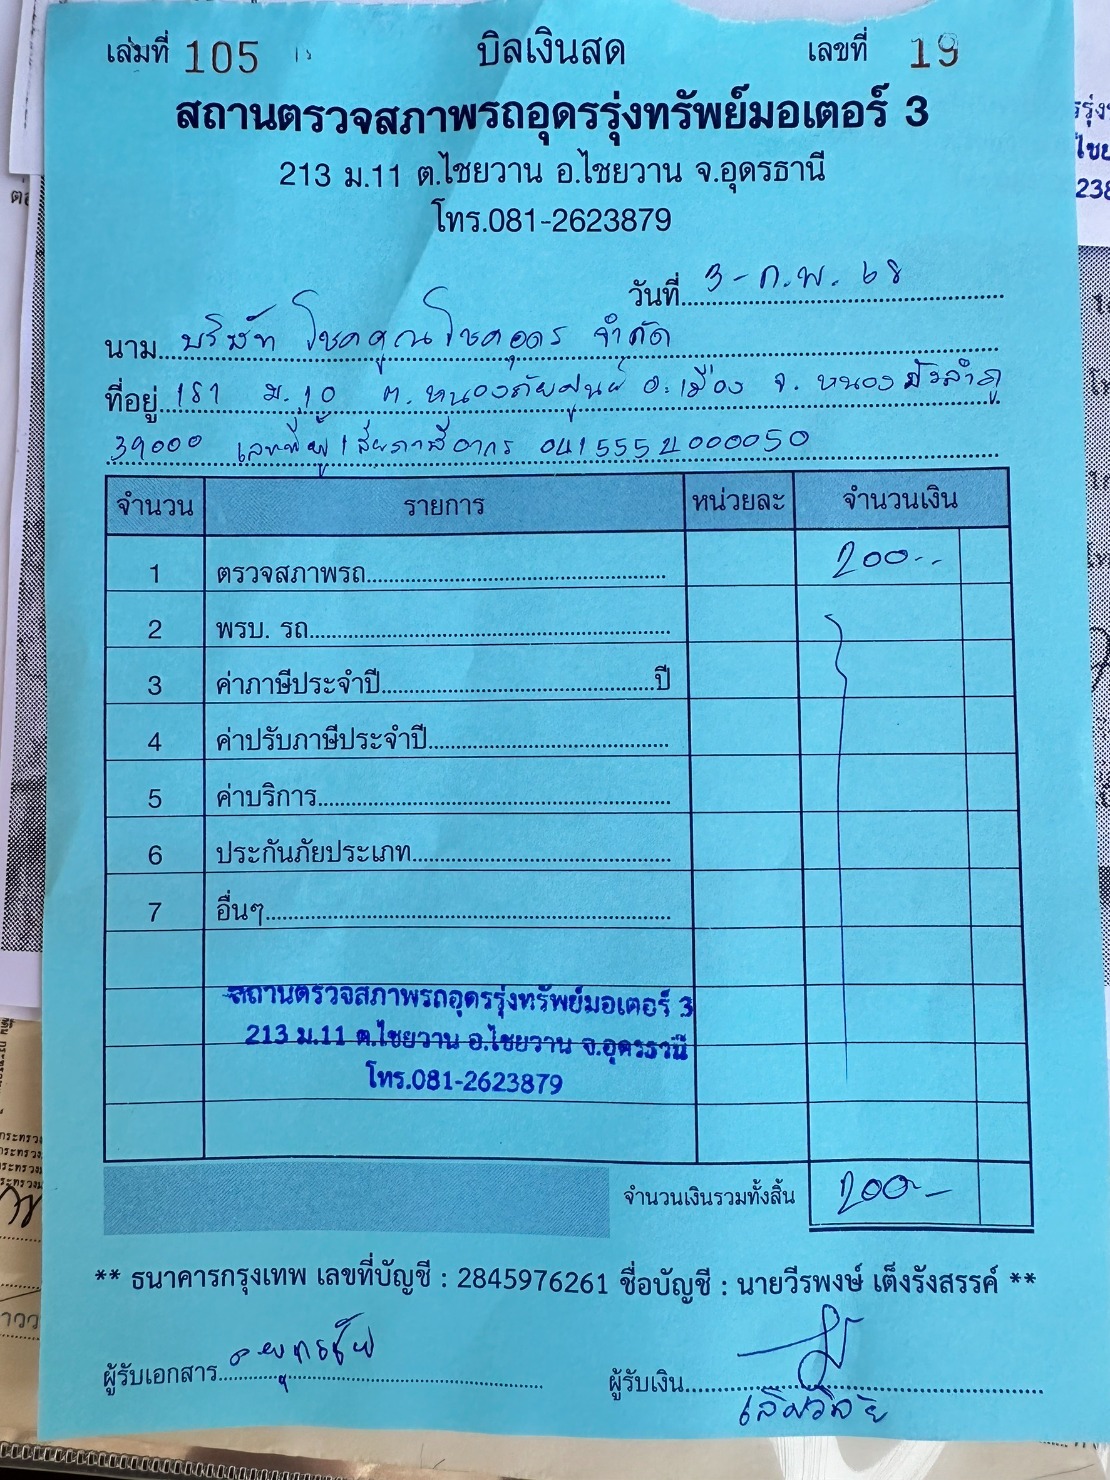 เล่มที่ 105 บิลเงินสด เลขที่ 19
สถานตรวจสภาพรถอุดรรุ่งทรัพย์มอเตอร์ 3
213 ม.11 ต.ไชยวาน อ.ไชยวาน จ.อุดรธานี
โทร.081-2623879
วันที่ 3-ก.พ. 68
นาม บริษัท โชคคูณโชคอุดร จำกัด
ที่อยู่ 181 ม.10 ต.หนองภัยศูนย์ อ.เมือง จ.หนองบัวลำภู
39000 เลขที่ผู้เสียภาษีอากร 0415552000050
จำนวน รายการ หน่วยละ จำนวนเงิน
1 ตรวจสภาพรถ 200--
2 พรบ. รถ
3 ค่าภาษีประจำปี ปี
4 ค่าปรับภาษีประจำปี
5 ค่าบริการ
6 ประกันภัยประเภท
7 อื่นๆ
สถานตรวจสภาพรถอุดรรุ่งทรัพย์มอเตอร์ 3
213 ม.11 ต.ไชยวาน อ.ไชยวาน จ.อุดรธานี
โทร.081-2623879
จำนวนเงินรวมทั้งสิ้น 200--
** ธนาคารกรุงเทพ เลขที่บัญชี : 2845976261 ชื่อบัญชี : นายวีรพงษ์ เต็งรังสรรค์ **
ผู้รับเอกสาร ผู้รับเงิน